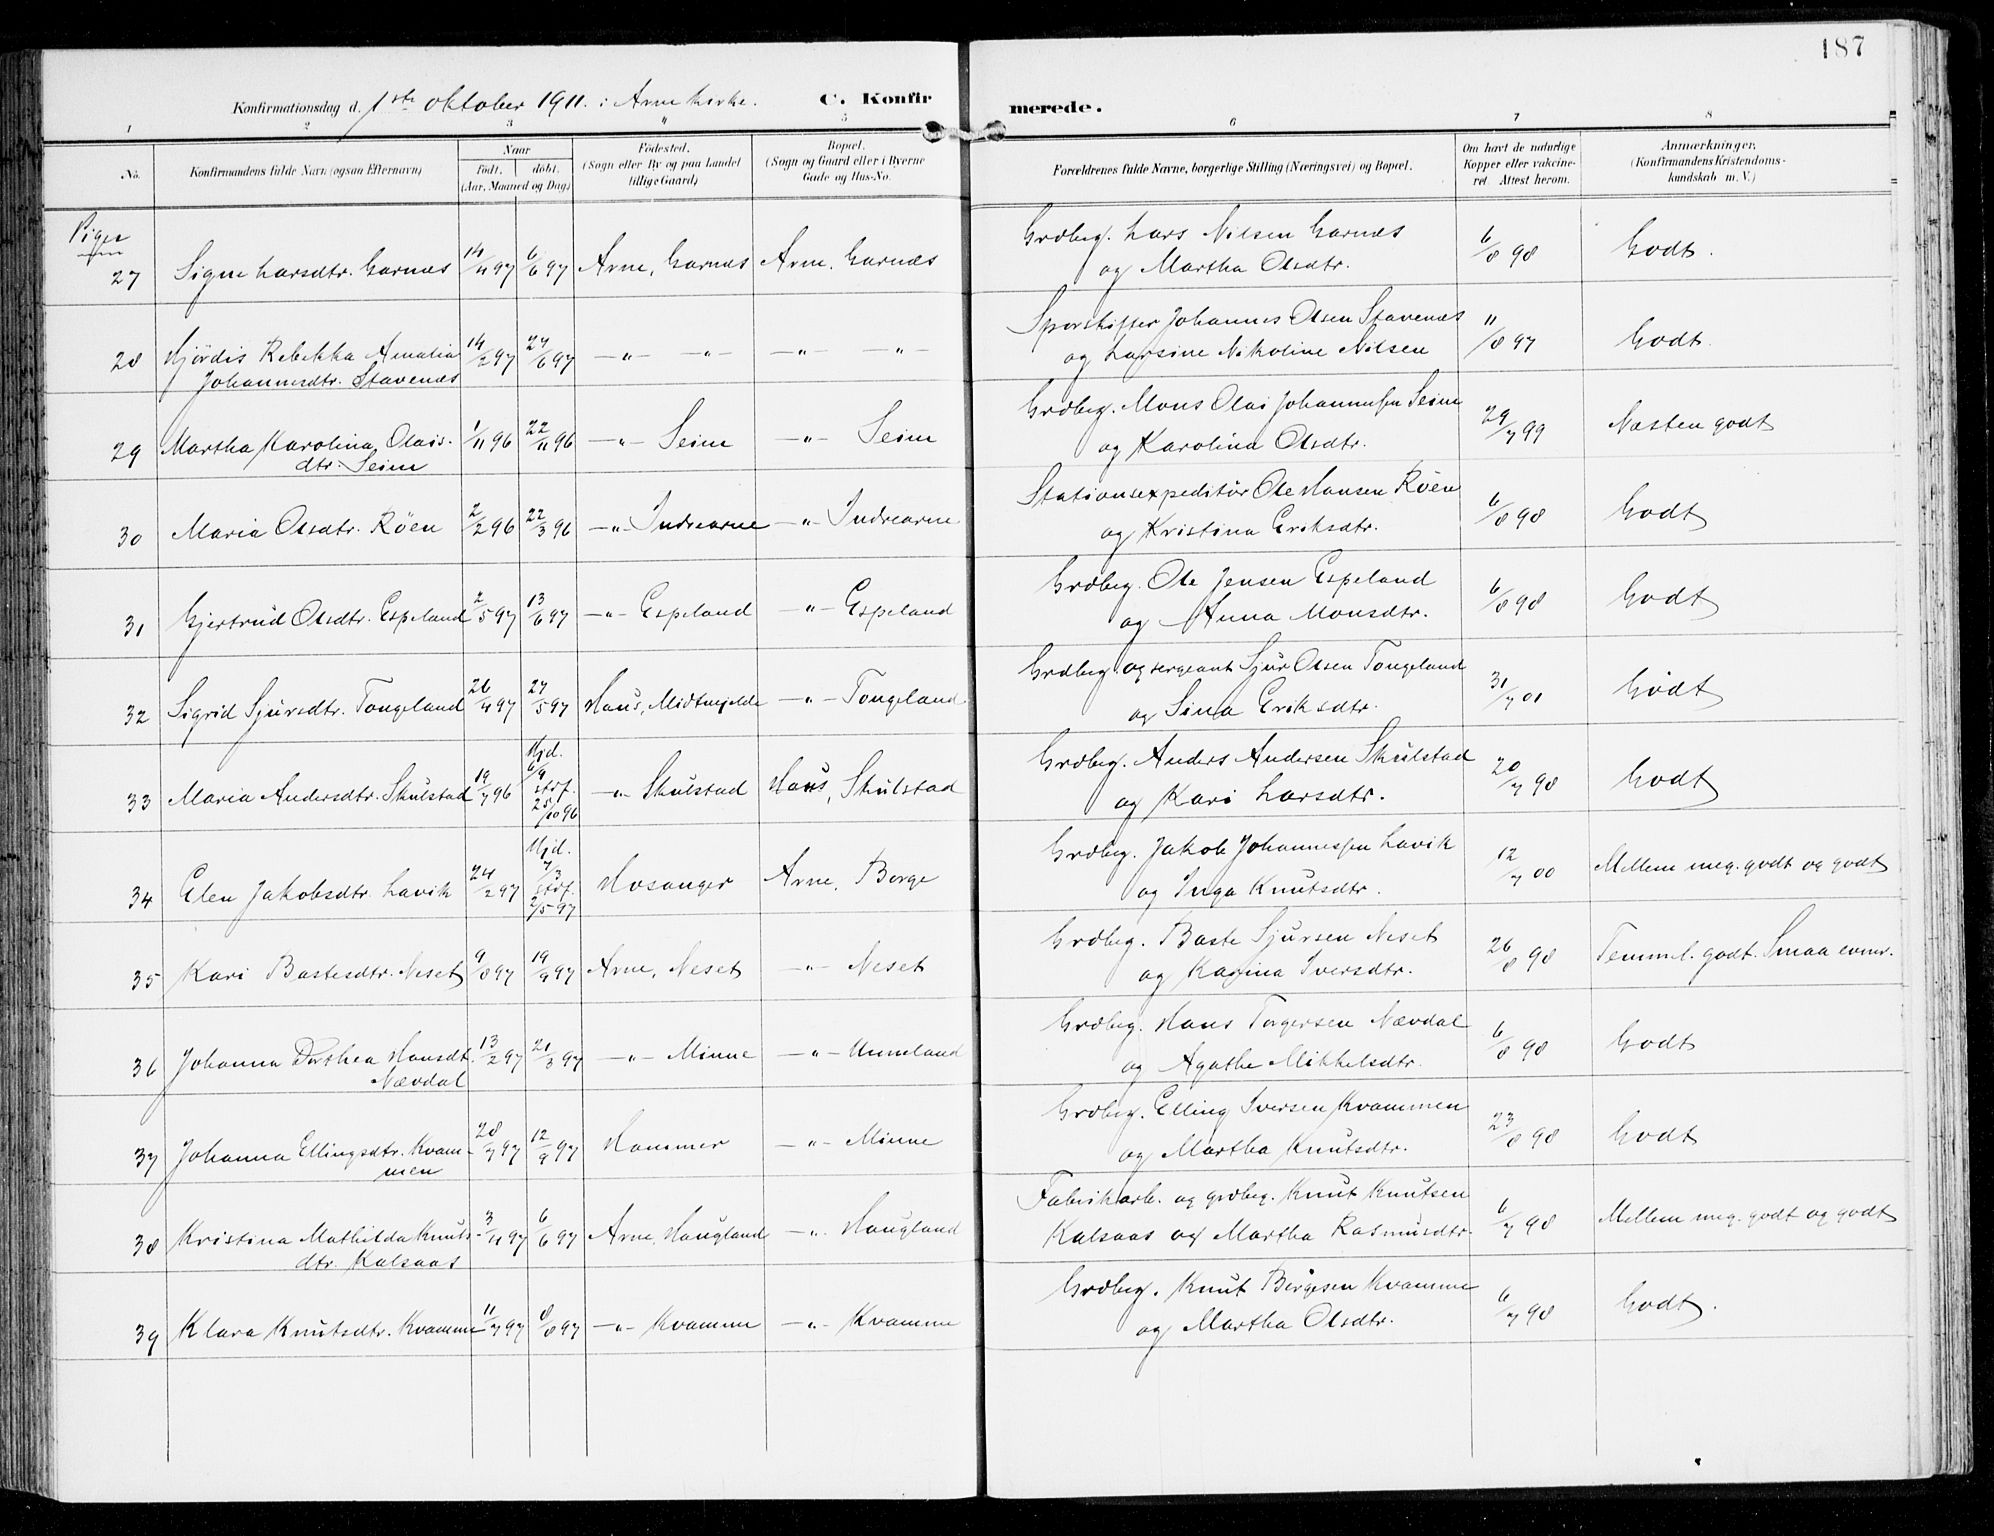 187
Konfirmationsdag d. 1ste oktober 1911. i Arne kirke. C. Konfirmerede.
1 2 3 4 5 6 7 8
No. Konfirmandens fulde Navn (ogsaa Efternavn) Naar født. døbt. (Aar, Maaned og Dag) Fødested. (Sogn eller By og paa Landet tillige Gaard) Bopæl. (Sogn og Gaard eller i Byerne Gade og Hus-No. Forældrenes fulde Navne, borgerlige Stilling (Næringsvei) og Bopæl. Om havt de naturlige Kopper eller vakcineret. Attest herom. Anmærkninger. (Konfirmandens Kristendomskundskab m. V.)
Piger
27 Signe Larsdtr. Garnæs 14/4 97 6/6 97 Arne, Garnæs Arne, Garnæs Grdbrg. Lars Nilsen Garnæs og Martha Olsdtr. 6/8 98 Godt.
28 Hjørdis Rebekka Amalia Johannesdtr. Stavenæs 14/2 97 27/6 97 —"— —"— —"— —"— Sporskifter Johannes Olsen Stavenæs og Larsine Nikoline Nilsen 11/8 97 Godt.
29 Martha Karolina Olaisdtr. Seim 1/11 96 22/11 96 —"— Seim —"— Seim Grdbrg. Mons Olai Johannessen Seim og Karolina Olsdtr. 29/7 99 Næsten godt
30 Maria Olsdtr. Røen 2/2 96 22/3 96 —"— Indrearne —"— Indrearne Stationsexpeditør Ole Hansen Røen og Kristina Eriksdtr. 6/8 98 Godt
31 Gjertrud Olsdtr. Espeland 2/5 97 13/6 97 —"— Espeland —"— Espeland Grdbrg. Ole Jensen Espeland og Anna Monsdtr. 6/8 98 Godt
32 Sigrid Sjursdtr. Tongeland 26/4 97 27/5 97 Haus, Midtmjelde —"— Tongeland Grdbrg. og sergeant Sjur Olsen Tongeland og Sina Eriksdtr. 31/7 01 Godt
33 Maria Andersdtr. Skulstad 19/7 96 Hjd. 6/9 stdf. 25/10 96 —"— Skulstad Haus, Skulstad Grdbrg. Anders Andersen Skulstad og Kari Larsdtr. 20/7 98 Godt
34 Elen Jakobsdtr. Lavik 24/2 97 Hjd. 7/3 stdf. 2/5 97 Hosanger Arne, Borge Grdbrg. Jakob Johannessen Lavik og Inga Knutsdtr. 12/7 00 Mellem meg. godt og godt
35 Kari Bastesdtr. Neset 9/8 97 19/9 97 Arne, Neset —"— Neset Grdbrg. Baste Sjursen Neset og Karina Iversdtr. 26/8 98 Temmel. godt. Smaa evner.
36 Johanna Dorthea Hansdt. Nævdal 13/2 97 21/3 97 —"— Minne —"— Unneland Grdbrg. Hans Torgersen Nævdal og Agathe Mikkelsdtr. 6/8 98 Godt
37 Johanna Ellingsdtr. Kvammen 28/7 97 12/9 97 Hammer —"— Minne Grdbrg. Elling Iversen Kvammen og Martha Knutsdtr. 23/8 98 Godt
38 Kristina Mathilda Knutsdtr. Kalsaas 3/4 97 6/6 97 Arne, Haugland —"— Haugland Fabrikarb. og grdbrg. Knut Knutsen Kalsaas og Martha Rasmusdtr. 6/7 98 Mellem meg. godt og godt
39 Klara Knutsdtr. Kvamme 11/7 97 8/8 97 —"— Kvamme —"— Kvamme Grdbrg. Knut Børgesen Kvamme og Martha Olsdtr. 6/7 98 Godt.